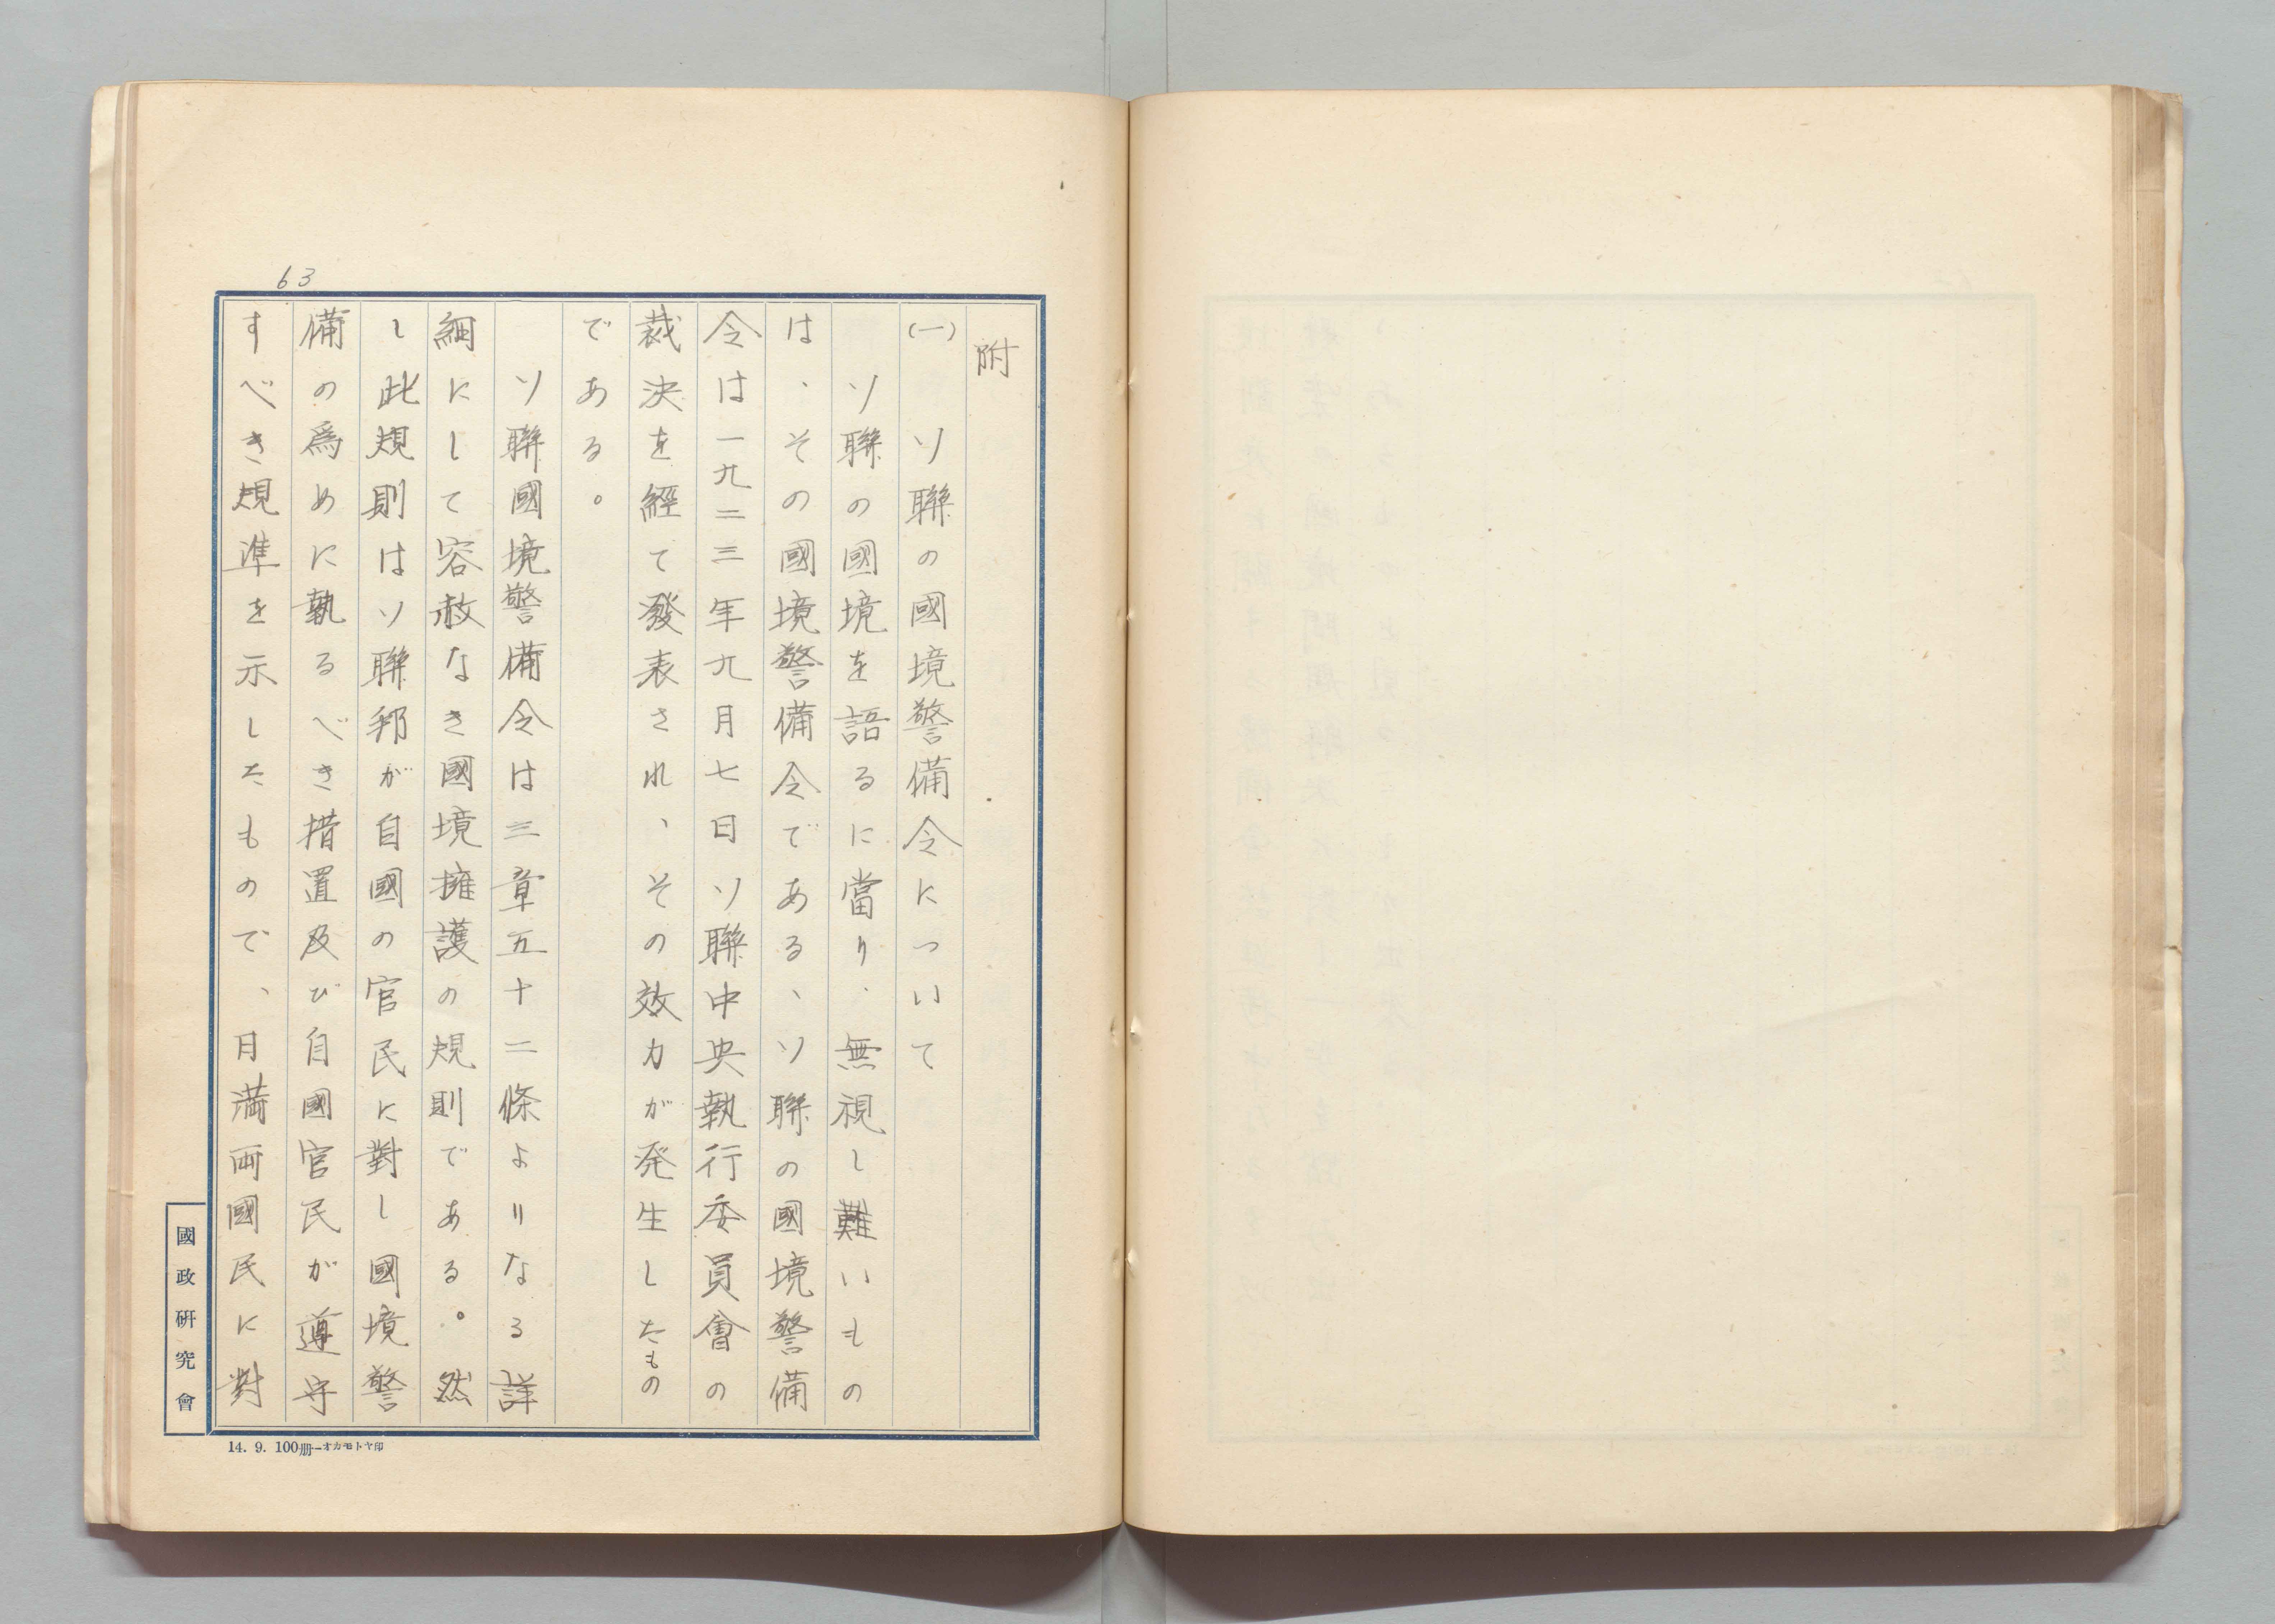 63
附
(一) ソ聯の國境警備令について
ソ聯の國境を語るに當り、無視し難いもの
は、その國境警備令である、ソ聯の國境警備
令は一九二三年九月七日ソ聯中央執行委員會の
裁決を経て發表され、その效力が発生したもの
である。
ソ聯國境警備令は三章五十二條よりなる詳
細にして容赦なき國境擁護の規則である。然
し此規則はソ聯邦が自國の官民に對し國境警
備の爲めに執るべき措置及び自國官民が遵守
すべき規準を示したもので、日満両國民に對
國政研究會
14. 9. 100册—オカモトヤ印